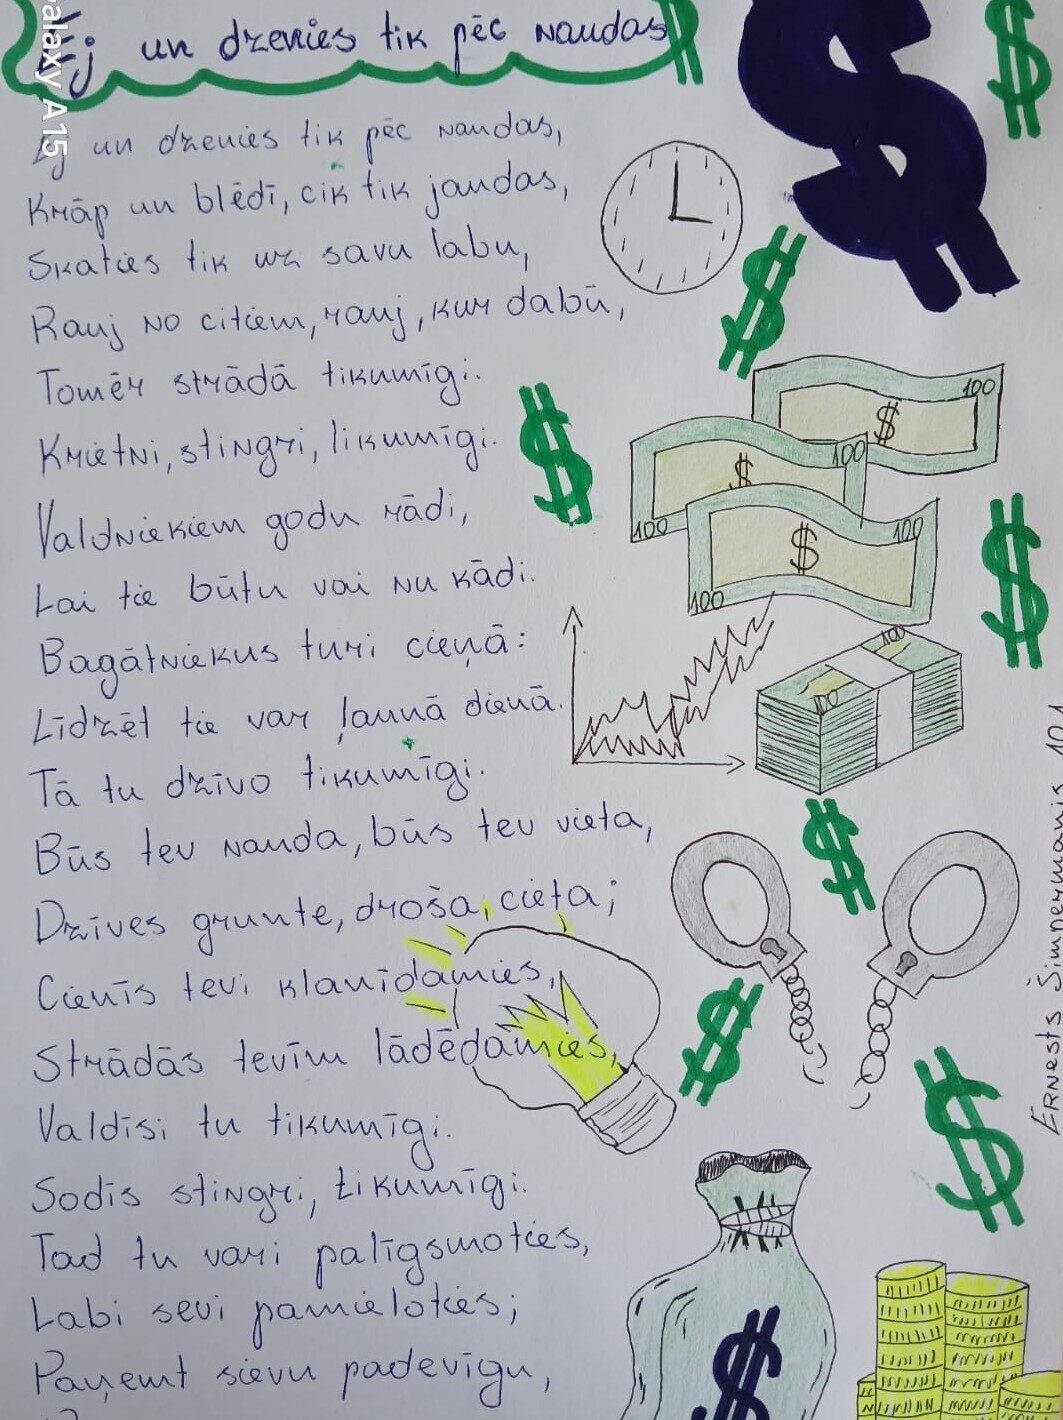 Ej un dzenies tik pēc naudas
Ej un dzenies tik pēc naudas,
Krāp un blēdī, cik tik jaudas,
Skaties tik uz savu labu,
Rauj no citiem, rauj, kur dabū,
Tomēr strādā tikumīgi.
Krietni, stingri, likumīgi.
Valdniekiem godu rādi,
Lai tie būtu vai nu kādi.
Bagātniekus turi cieņā:
Līdzēt tie var ļaunā dienā.
Tā tu dzīvo tikumīgi.
Būs tev nauda, būs tev vieta,
Dzīves grunte, droša, cieta;
Cienīs tevi klanīdamies,
Strādās tevīm lādēdamies,
Valdīsi tu tikumīgi.
Sodīs stingri, tikumīgi.
Tad tu vari palīgsmoties,
Labi sevi pamieloties;
Paņemt sievu padevīgu,
$
$
$
$
$
$
$
$
$
$
100
$
100
$
100
100
$
100
100
100
$
Ernests Šimpermanis 10.
alaxy A15